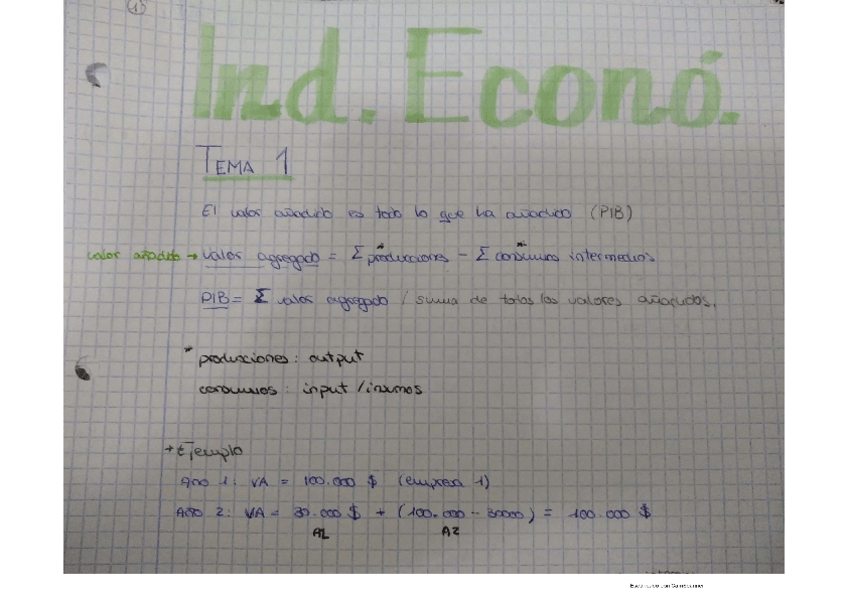 1
Ind. Econó.
TEMA 1
El valor añadido es todo lo que ha añadido (PIB)
valor añadido → valor agregado = Σ producciones* - Σ consumos* intermedios
PIB = Σ valor agregado / suma de todos los valores añadidos.
* producciones: output
consumos: input / insumos
→ Ejemplo
Año 1: VA = 100.000 $ (empresa 1)
Año 2: VA = 30.000 $ + (100.000 - 30000) = 100.000 $
A1 A2
Escaneado con CamScanner